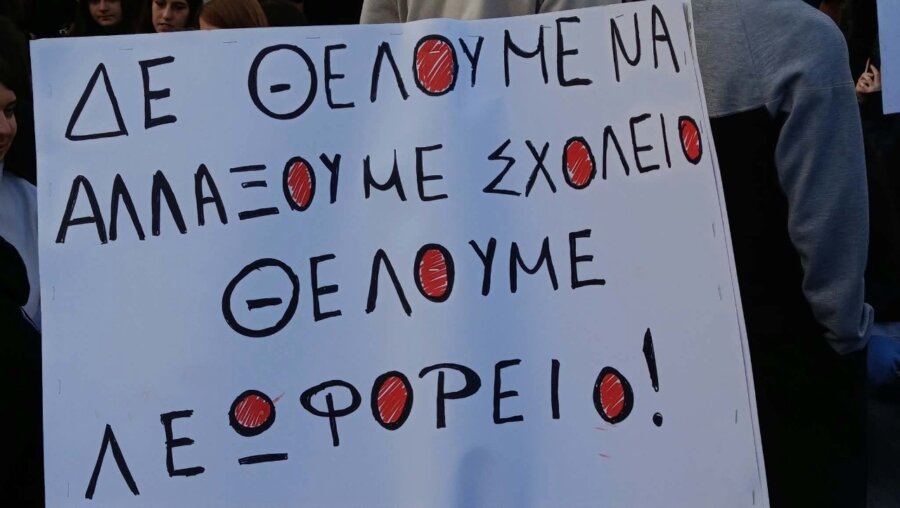 ΔΕ ΘΕΛΟΥΜΕ ΝΑ
ΑΛΛΑΞΟΥΜΕ ΣΧΟΛΕΙΟ
ΘΕΛΟΥΜΕ
ΛΕΩΦΟΡΕΙΟ!